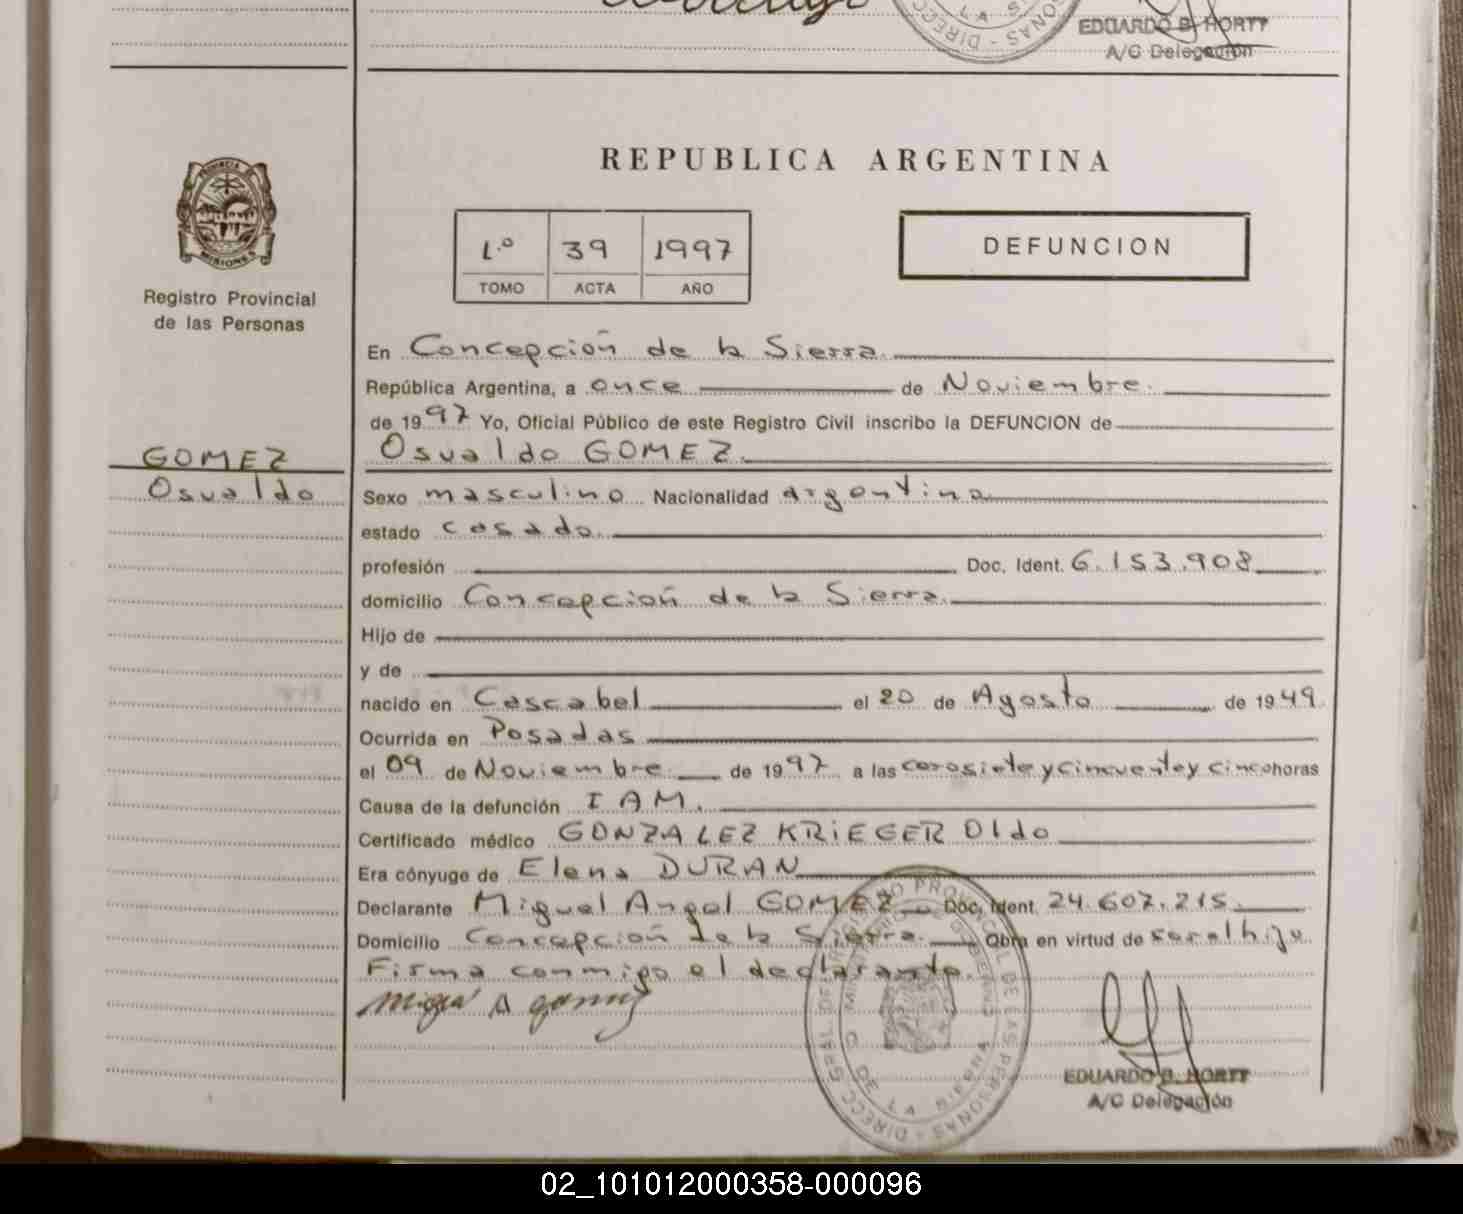 EDUARDO B. HORTT
A/C Delegación
REPUBLICA ARGENTINA
PROVINCIA DE
MISIONES
Registro Provincial
de las Personas
1.º 39 1997
TOMO ACTA AÑO
DEFUNCION
En Concepción de la Sierra
República Argentina, a once de Noviembre.
de 1997 Yo, Oficial Público de este Registro Civil inscribo la DEFUNCION de
Osvaldo GOMEZ.
GOMEZ
Osvaldo
Sexo masculino Nacionalidad argentina
estado casado.
profesión Doc. Ident. 6.153.908
domicilio Concepción de la Sierra.
Hijo de
y de
nacido en Cascabel el 20 de Agosto de 1949
Ocurrida en Posadas
el 09 de Noviembre de 1997 a las cerosiete y cincuenta y cinco horas
Causa de la defunción I A M.
Certificado médico GONZALEZ KRIEGER Oldo
Era cónyuge de Elena DURAN
Declarante Miguel Angel GOMEZ Doc. Ident. 24.607.215.
Domicilio Concepción de la Sierra. Obra en virtud de ser el hijo
Firma conmigo el declarante.
EDUARDO B. HORTT
A/C Delegación
02_101012000358-000096